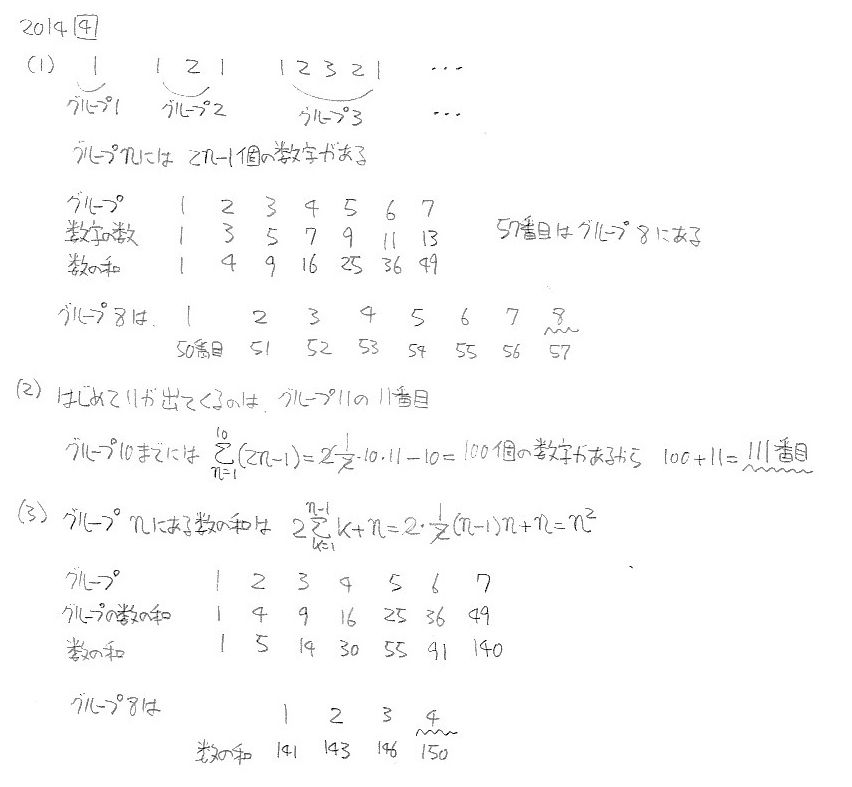 2014 4
(1) 1 1 2 1 1 2 3 2 1 ...
グループ1 グループ2 グループ3 ...
グループnには 2n-1個の数字がある
グループ 1 2 3 4 5 6 7
数字の数 1 3 5 7 9 11 13 57番目はグループ8にある
数の和 1 4 9 16 25 36 49
グループ8は、 1 2 3 4 5 6 7 8
50番目 51 52 53 54 55 56 57
(2) はじめて11が出てくるのは、グループ11の11番目
グループ10までには \sum_{n=1}^{10}(2n-1)=2·\frac{1}{2}·10·11-10=100個の数字があるから 100+11=111番目
(3) グループnにある数の和は 2\sum_{k=1}^{n-1}k+n=2·\frac{1}{2}(n-1)n+n=n²
グループ 1 2 3 4 5 6 7
グループの数の和 1 4 9 16 25 36 49
数の和 1 5 14 30 55 91 140
グループ8は
1 2 3 4
数の和 141 143 146 150